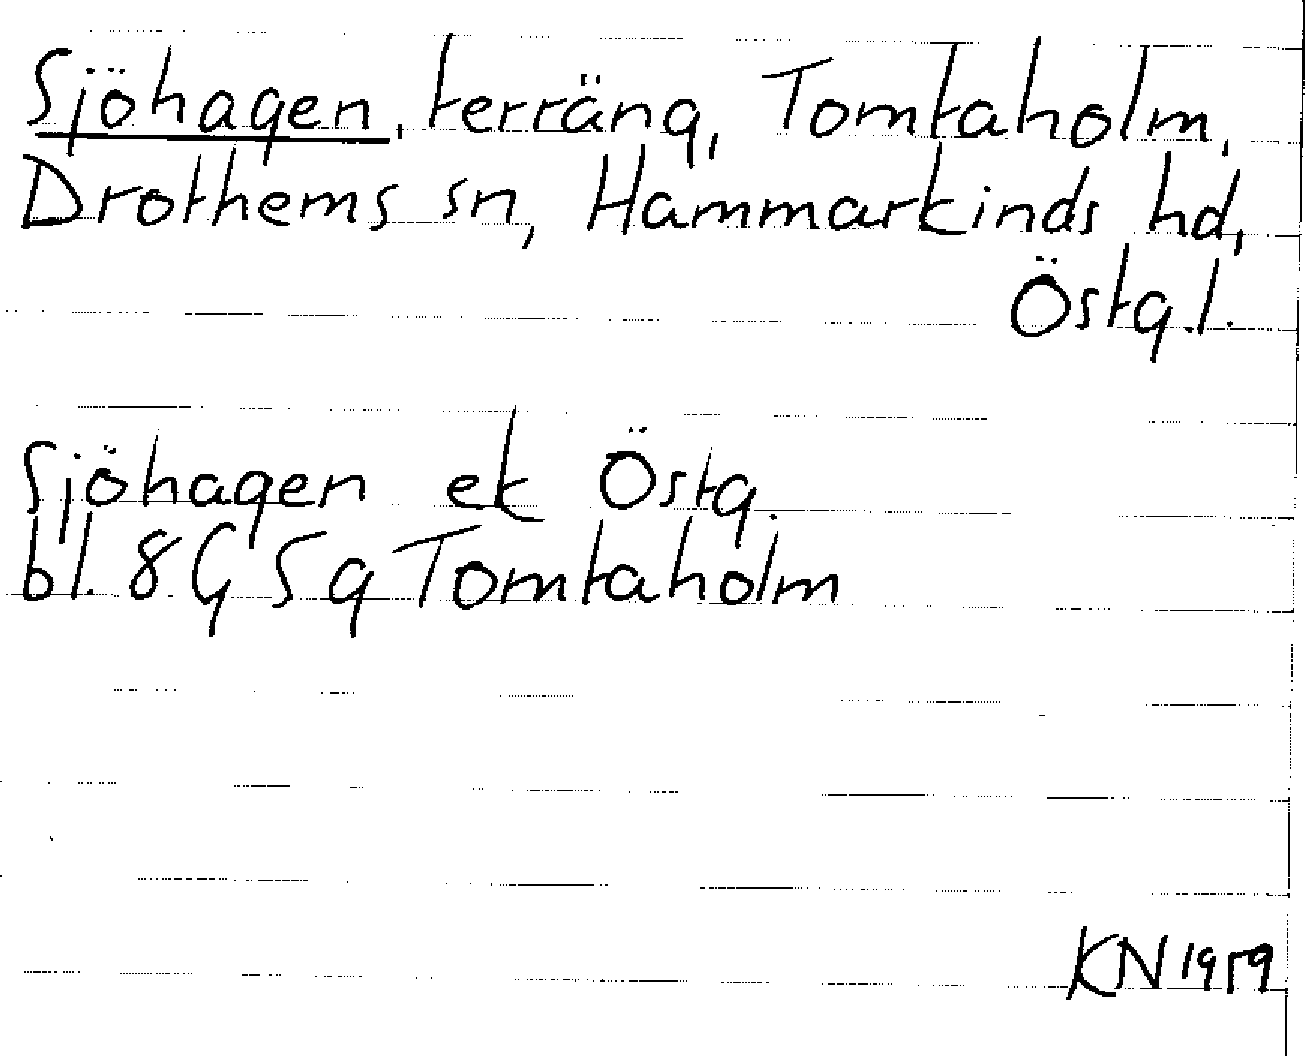 Sjöhagen, terräng, Tomtaholm,
Drothems sn, Hammarkinds hd,
Östg.l.
Sjöhagen ek Östg.
bl. 8 G 5 g Tomtaholm
KN 1959